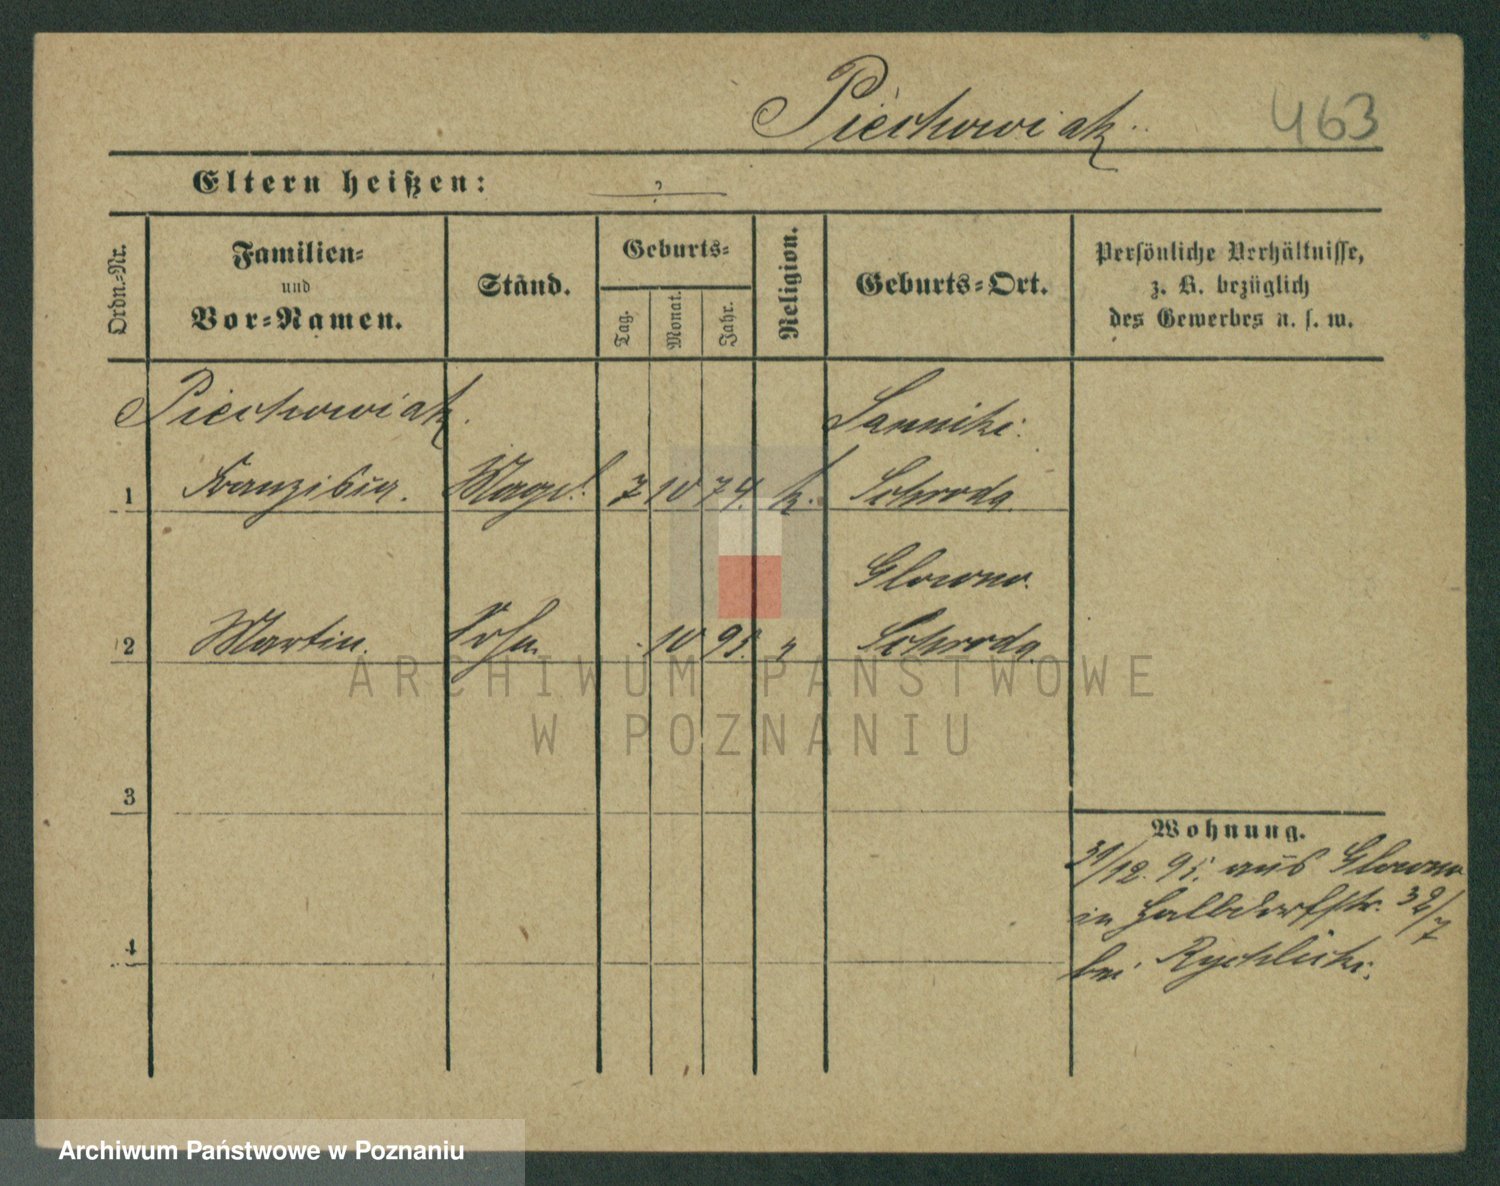 Piechowiak.
463
Eltern heißen: ?
Ordn.-Nr.
Familien-
und
Vor-Namen.
Stand.
Geburts-
Tag.
Monat.
Jahr.
Religion.
Geburts-Ort.
Persönliche Verhältnisse,
z. B. bezüglich
des Gewerbes u. s. w.
Piechowiak. Sanniki.
1 Franziska. Magd. 7 10 74. k. Schroda
Glowno.
2 Martin. Sohn. 10 95. " Schroda.
3
4
Wohnung.
31/12. 95. aus Glowno
in Halbdorfstr. 32/7
bei Rychlicki.
ARCHIWUM PAŃSTWOWE
W POZNANIU
Archiwum Państwowe w Poznaniu